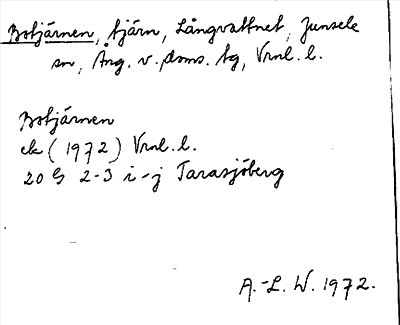 Botjärnen, tjärn, Långvattnet, Junsele
sn, Ång. v. doms. tg, Vrnl. l.
Botjärnen
ek (1972) Vrnl. l.
20 G 2-3 i-j Tarasjöberg
A.-L. W. 1972.